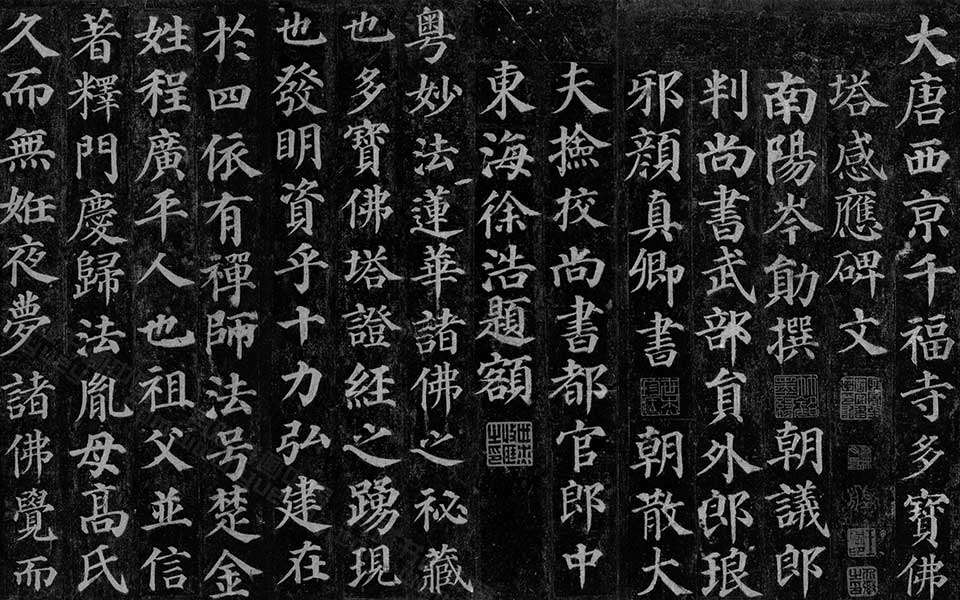 大唐西亰千福寺多寶佛
塔感應碑文
南陽岑勛撰 朝議郎
判尚書武部貟外郎琅
邪顏真卿書 朝散大
夫撿挍尚書都官郎中
東海徐浩題額
粵妙法蓮華諸佛之秘藏
也多寶佛塔證經之踴現
也發明資乎十力弘建在
於四依有禪師法号楚金
姓程廣平人也祖父並信
著釋門慶歸法胤母髙氏
久而無姙夜夢 諸佛覺而